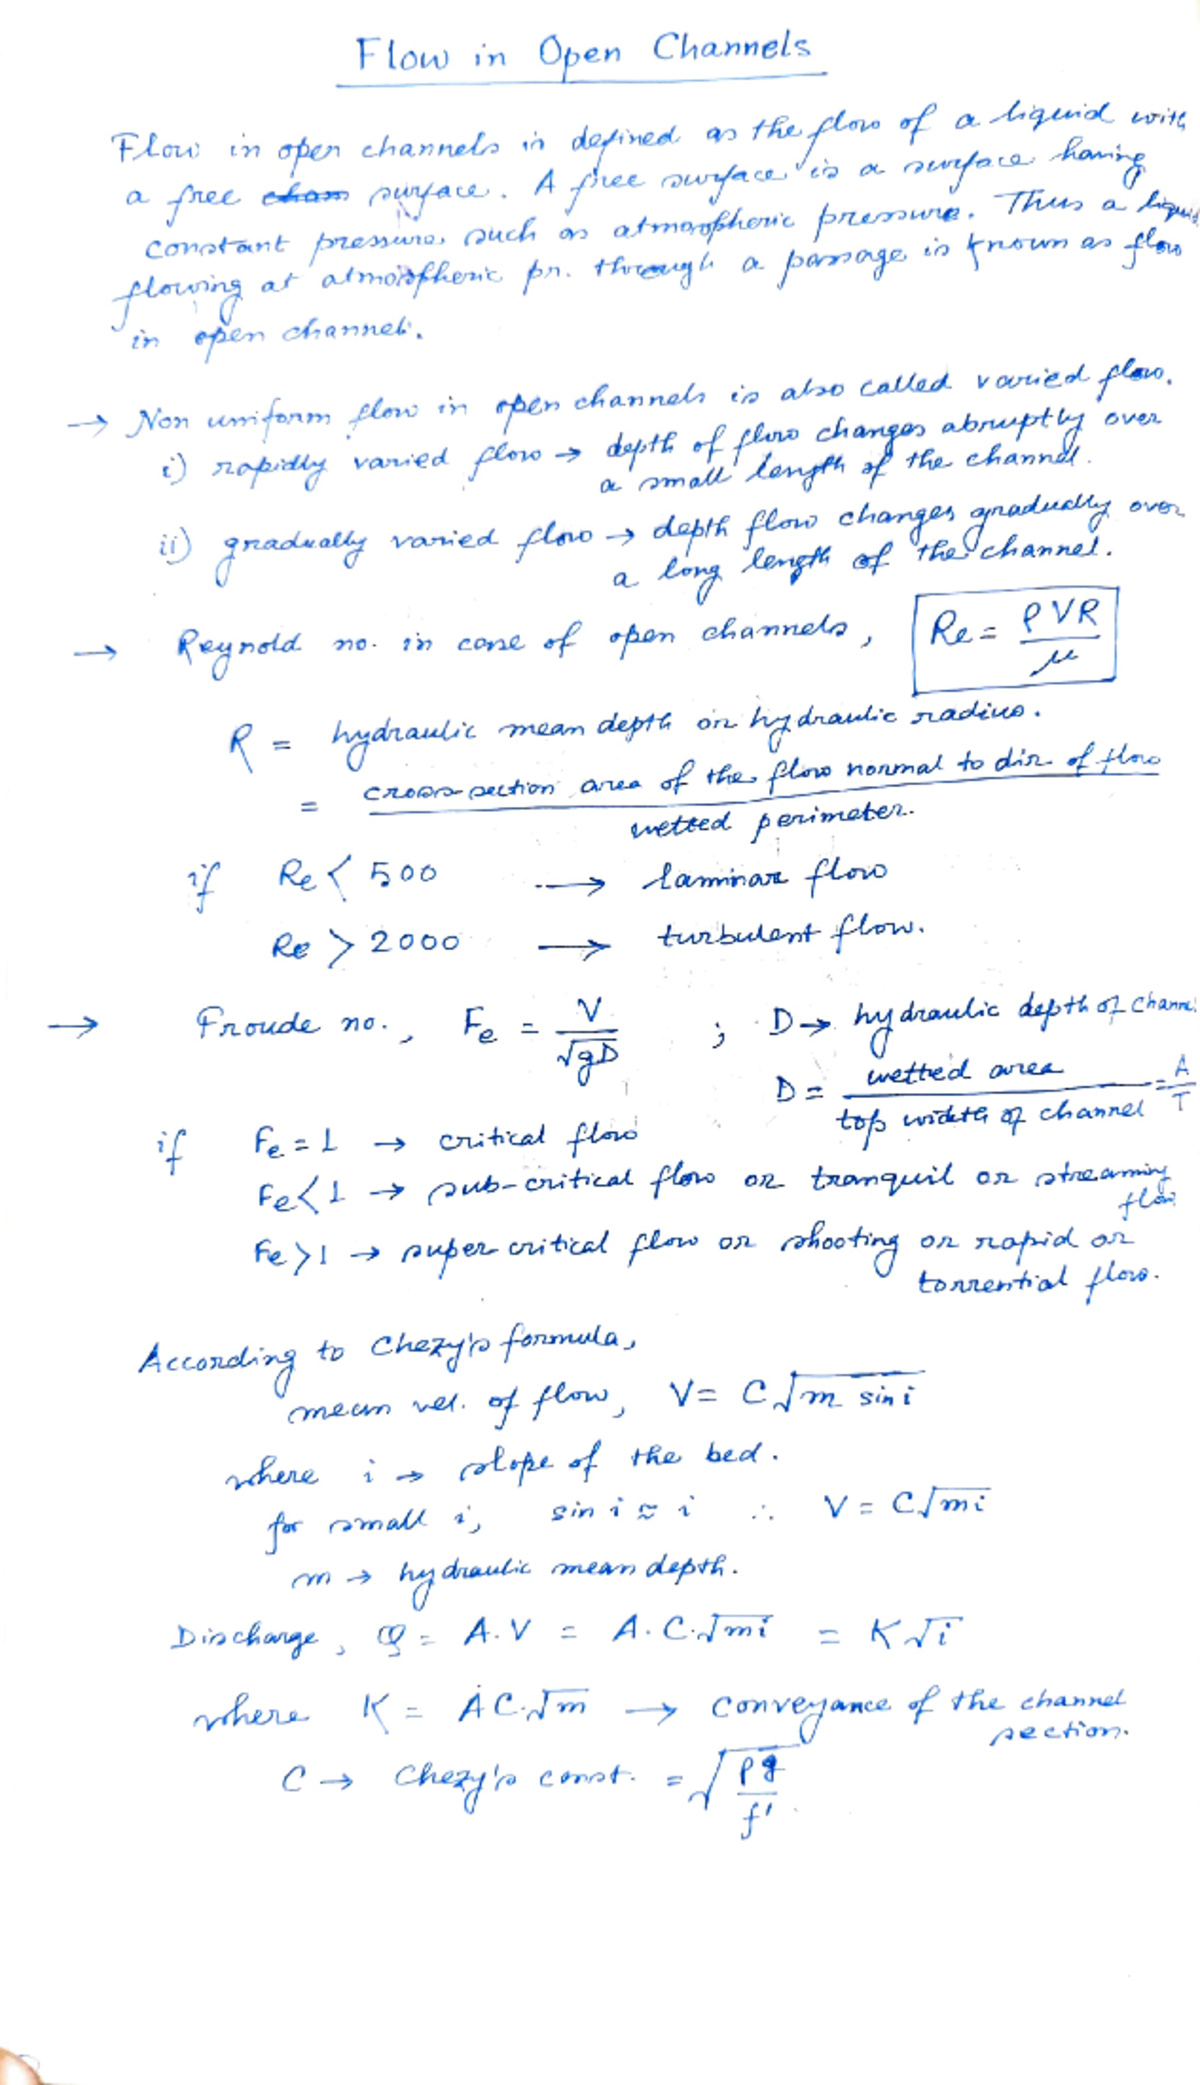 Flow in Open Channels
Flow in open channels is defined as the flow of a liquid with
a free cham surface. A free surface is a surface having
constant pressure such as atmospheric pressure. Thus a liquid
flowing at atmospheric pr. through a passage is known as flow
in open channel.
→ Non uniform flow in open channels is also called varied flow.
i) rapidly varied flow → depth of flow changes abruptly over
a small length of the channel.
ii) gradually varied flow → depth flow changes gradually over
a long length of the channel.
→ Reynold no. in case of open channels, Re = ρVR/μ
R = hydraulic mean depth or hydraulic radius.
= cross-section area of the flow normal to dir. of flow / wetted perimeter.
if Re < 500 → laminar flow
Re > 2000 → turbulent flow.
→ Froude no., Fe = V/√gD ; D → hydraulic depth of channel
D = wetted area / top width of channel = A/T
if Fe = 1 → critical flow
Fe < 1 → sub-critical flow or tranquil or streaming
flow
Fe > 1 → super critical flow or shooting or rapid or
torrential flow.
According to Chezy's formula,
mean vel. of flow, V = C√m sin i
where i → slope of the bed.
for small i, sin i ≈ i ∴ V = C√mi
m → hydraulic mean depth.
Discharge, Q = A.V = A.C.√mi = K√i
where K = AC.√m → conveyance of the channel
section.
C → Chezy's const. = √ρg/f'